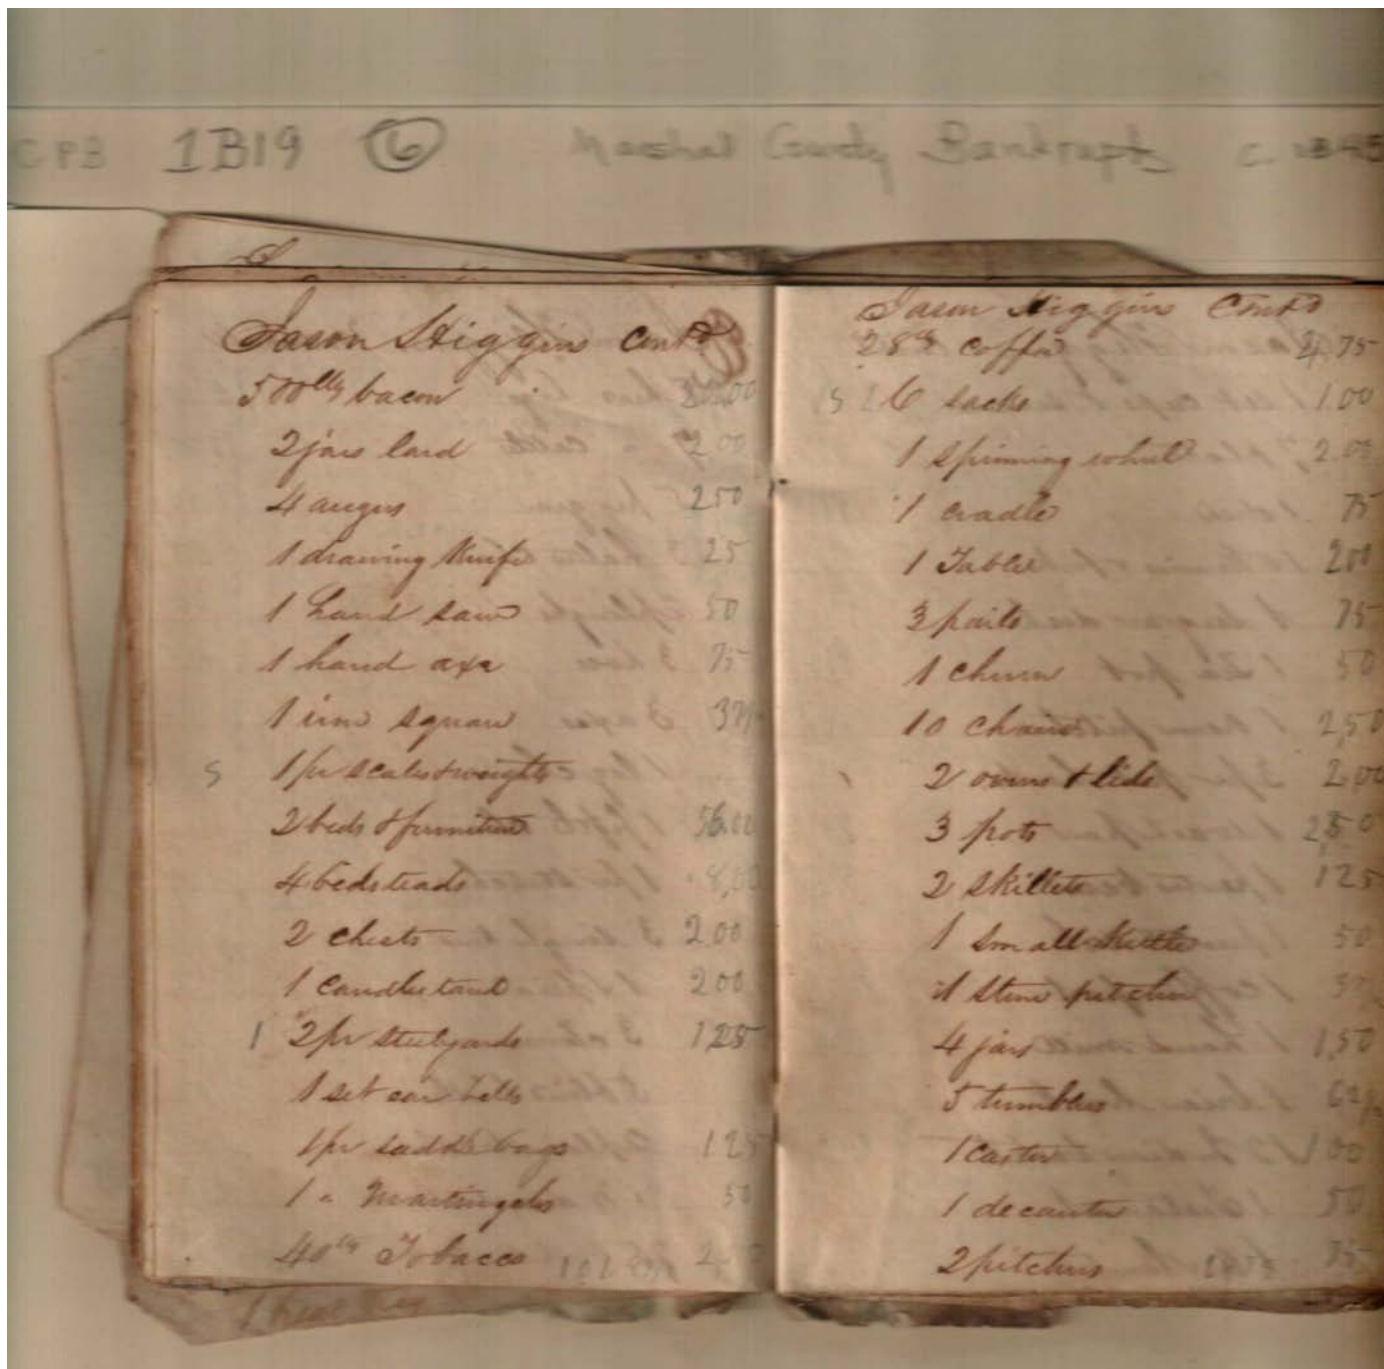 1B19 6 Marshal County Bankrupts
Jason Higgins Contd
500lbs bacon
2 jars lard 2 00
4 augers 2 50
1 drawing knife 25
1 hand saw 50
1 hand axe 75
1 iron square 37
5 1 pr scales & weights
2 beds & furniture
4 bedsteads 8,00
2 chests 2 00
1 candlestand 2 00
1 2 pr steelyards 1 25
1 set ear bells
1 pr saddle bags 1 25
1 " Martingales 50
40lbs Tobacco
Jason Higgins Contd
28lbs coffee 75
5 6 sacks 1 00
1 spinning wheel 2.00
1 cradle 75
1 Table 2 00
3 pails 75
1 churn 50
10 chairs 2,50
2 ovens & lids 2,00
3 pots 2,50
2 skillets 1 25
1 small kettle 50
1 stone pitcher
4 jars 1,50
5 tumblers
1 caster 1 00
1 decanter 50
2 pitchers 75